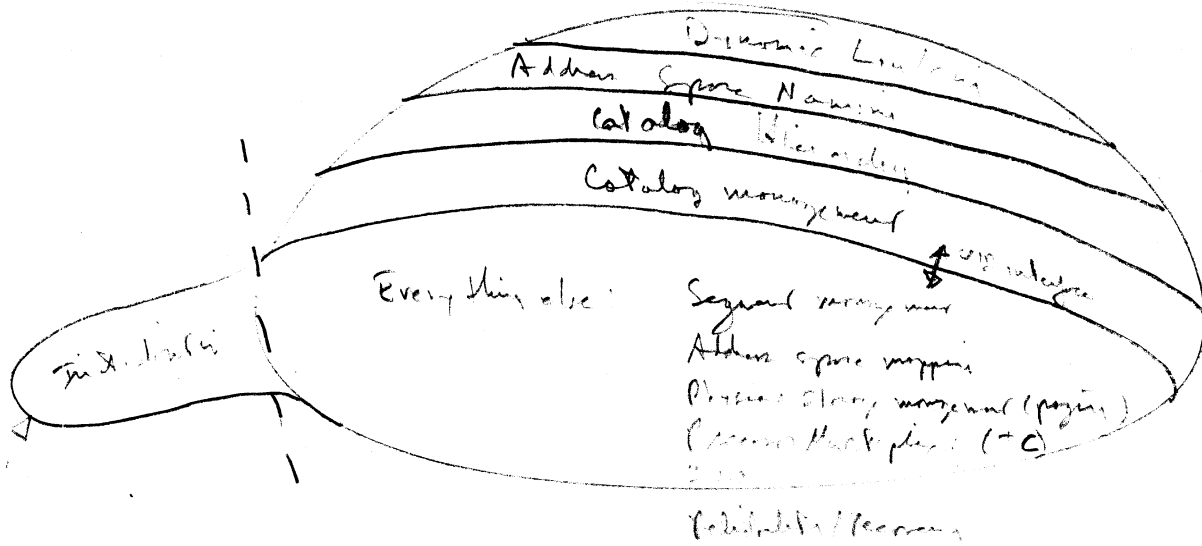 Dynamic Linking
Address Space Naming
Catalog Hierarchy
Catalog management
interface
Everything else:
Segment management
Initialization
Address space mapping
Physical storage management (paging)
Processor Multiplex
Reliability/Recovery